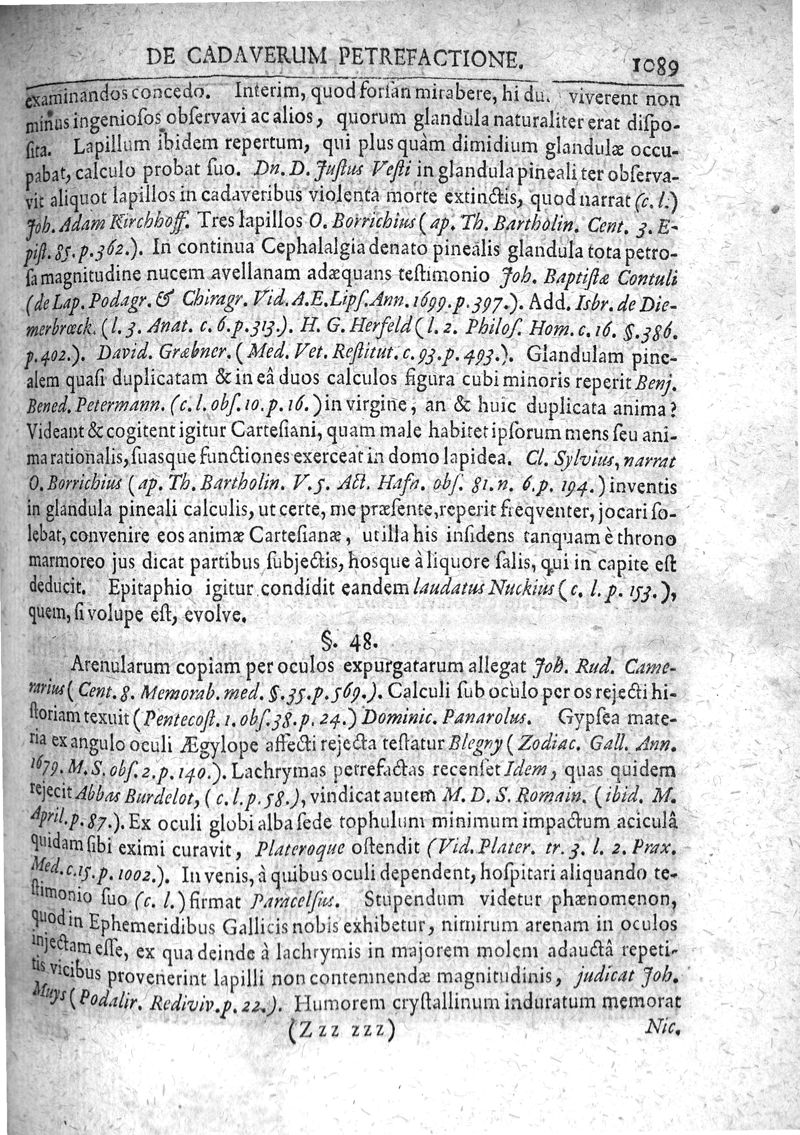 DE CADAVERUM PETREFACTIONE. 1089
examinandos concedo. Interim, quod forſan mirabere, hi viverent non
minus ingenioſos obſervavi ac alios, quorum glandula naturaliter erat diſpo-
ſita. Lapillum ibidem repertum, qui plus quàm dimidium glandulæ occu-
pabat, calculo probat ſuo. Dn. D. Juſtus Veſti in glandula pineali ter obſerva-
vit aliquot lapillos in cadaveribus violenta morte extinctis, quod narrat (c. l.)
Joh. Adam Kirchhoff. Tres lapillos O. Borrichius (ap. Th. Bartholin. Cent. 3. E-
piſt. 85. p. 362.). In continua Cephalalgia denato pinealis glandula tota petro-
ſa magnitudine nucem avellanam adæquans teſtimonio Joh. Baptiſtæ Contuli
(de Lap. Podagr. & Chiragr. Vid. A. E. Lipſ. Ann. 1699. p. 397.). Add. Isbr. de Die-
merbrœck. (l. 3. Anat. c. 6. p. 313.). H. G. Herfeld (l. 2. Philoſ. Hom. c. 16. §. 386.
p. 402.). David. Græbner. (Med. Vet. Reſtitut. c. 93. p. 493.). Glandulam pine-
alem quaſi duplicatam & in eâ duos calculos figura cubi minoris reperit Benj.
Bened. Petermann. (c. l. obſ. 10. p. 16.) in virgine, an & huic duplicata anima?
Videant & cogitent igitur Carteſiani, quam male habitet ipſorum mens ſeu ani-
ma rationalis, ſuasque functiones exerceat in domo lapidea. Cl. Sylvius, narrat
O. Borrichius (ap. Th. Bartholin. V. 5. Act. Hafn. obſ. 81. n. 6. p. 194.) inventis
in glandula pineali calculis, ut certe, me præſente, reperit freqventer, jocari ſo-
lebat, convenire eos animæ Carteſianæ, ut illa his inſidens tanquam è throno
marmoreo jus dicat partibus ſubjectis, hosque à liquore ſalis, qui in capite eſt
deducit. Epitaphio igitur condidit eandem laudatus Nuckius (c. l. p. 153.),
quem, ſi volupe eſt, evolve.
§. 48.
Arenularum copiam per oculos expurgatarum allegat Joh. Rud. Came-
rarius (Cent. 8. Memorab. med. §. 35. p. 569.). Calculi ſub oculo per os rejecti hi-
ſtoriam texuit (Pentecoſt. 1. obſ. 38. p. 24.) Dominic. Panarolus. Gypſea mate-
ria ex angulo oculi Ægylope affecti rejecta teſtatur Blegny (Zodiac. Gall. Ann.
1679. M. S. obſ. 2. p. 140.). Lachrymas petrefactas recenſet Idem, quas quidem
rejecit Abbas Burdelot, (c. l. p. 58.), vindicat autem M. D. S. Romain. (ibid. M.
April. p. 87.). Ex oculi globi alba ſede tophulum minimum impactum aciculâ
quidam ſibi eximi curavit, Plateroque oſtendit (Vid. Plater. tr. 3. l. 2. Prax.
Med. c. 15. p. 1002.). In venis, à quibus oculi dependent, hoſpitari aliquando te-
ſtimonio ſuo (c. l.) firmat Paracelſus. Stupendum videtur phænomenon,
quod in Ephemeridibus Gallicis nobis exhibetur, nimirum arenam in oculos
injectam eſſe, ex qua deinde à lachrymis in majorem molem adauctâ repeti-
tis vicibus provenerint lapilli non contemnendæ magnitudinis, judicat Joh.
Muys (Podalir. Rediviv. p. 22.). Humorem cryſtallinum induratum memorat
(Zzz zzz) Nic.